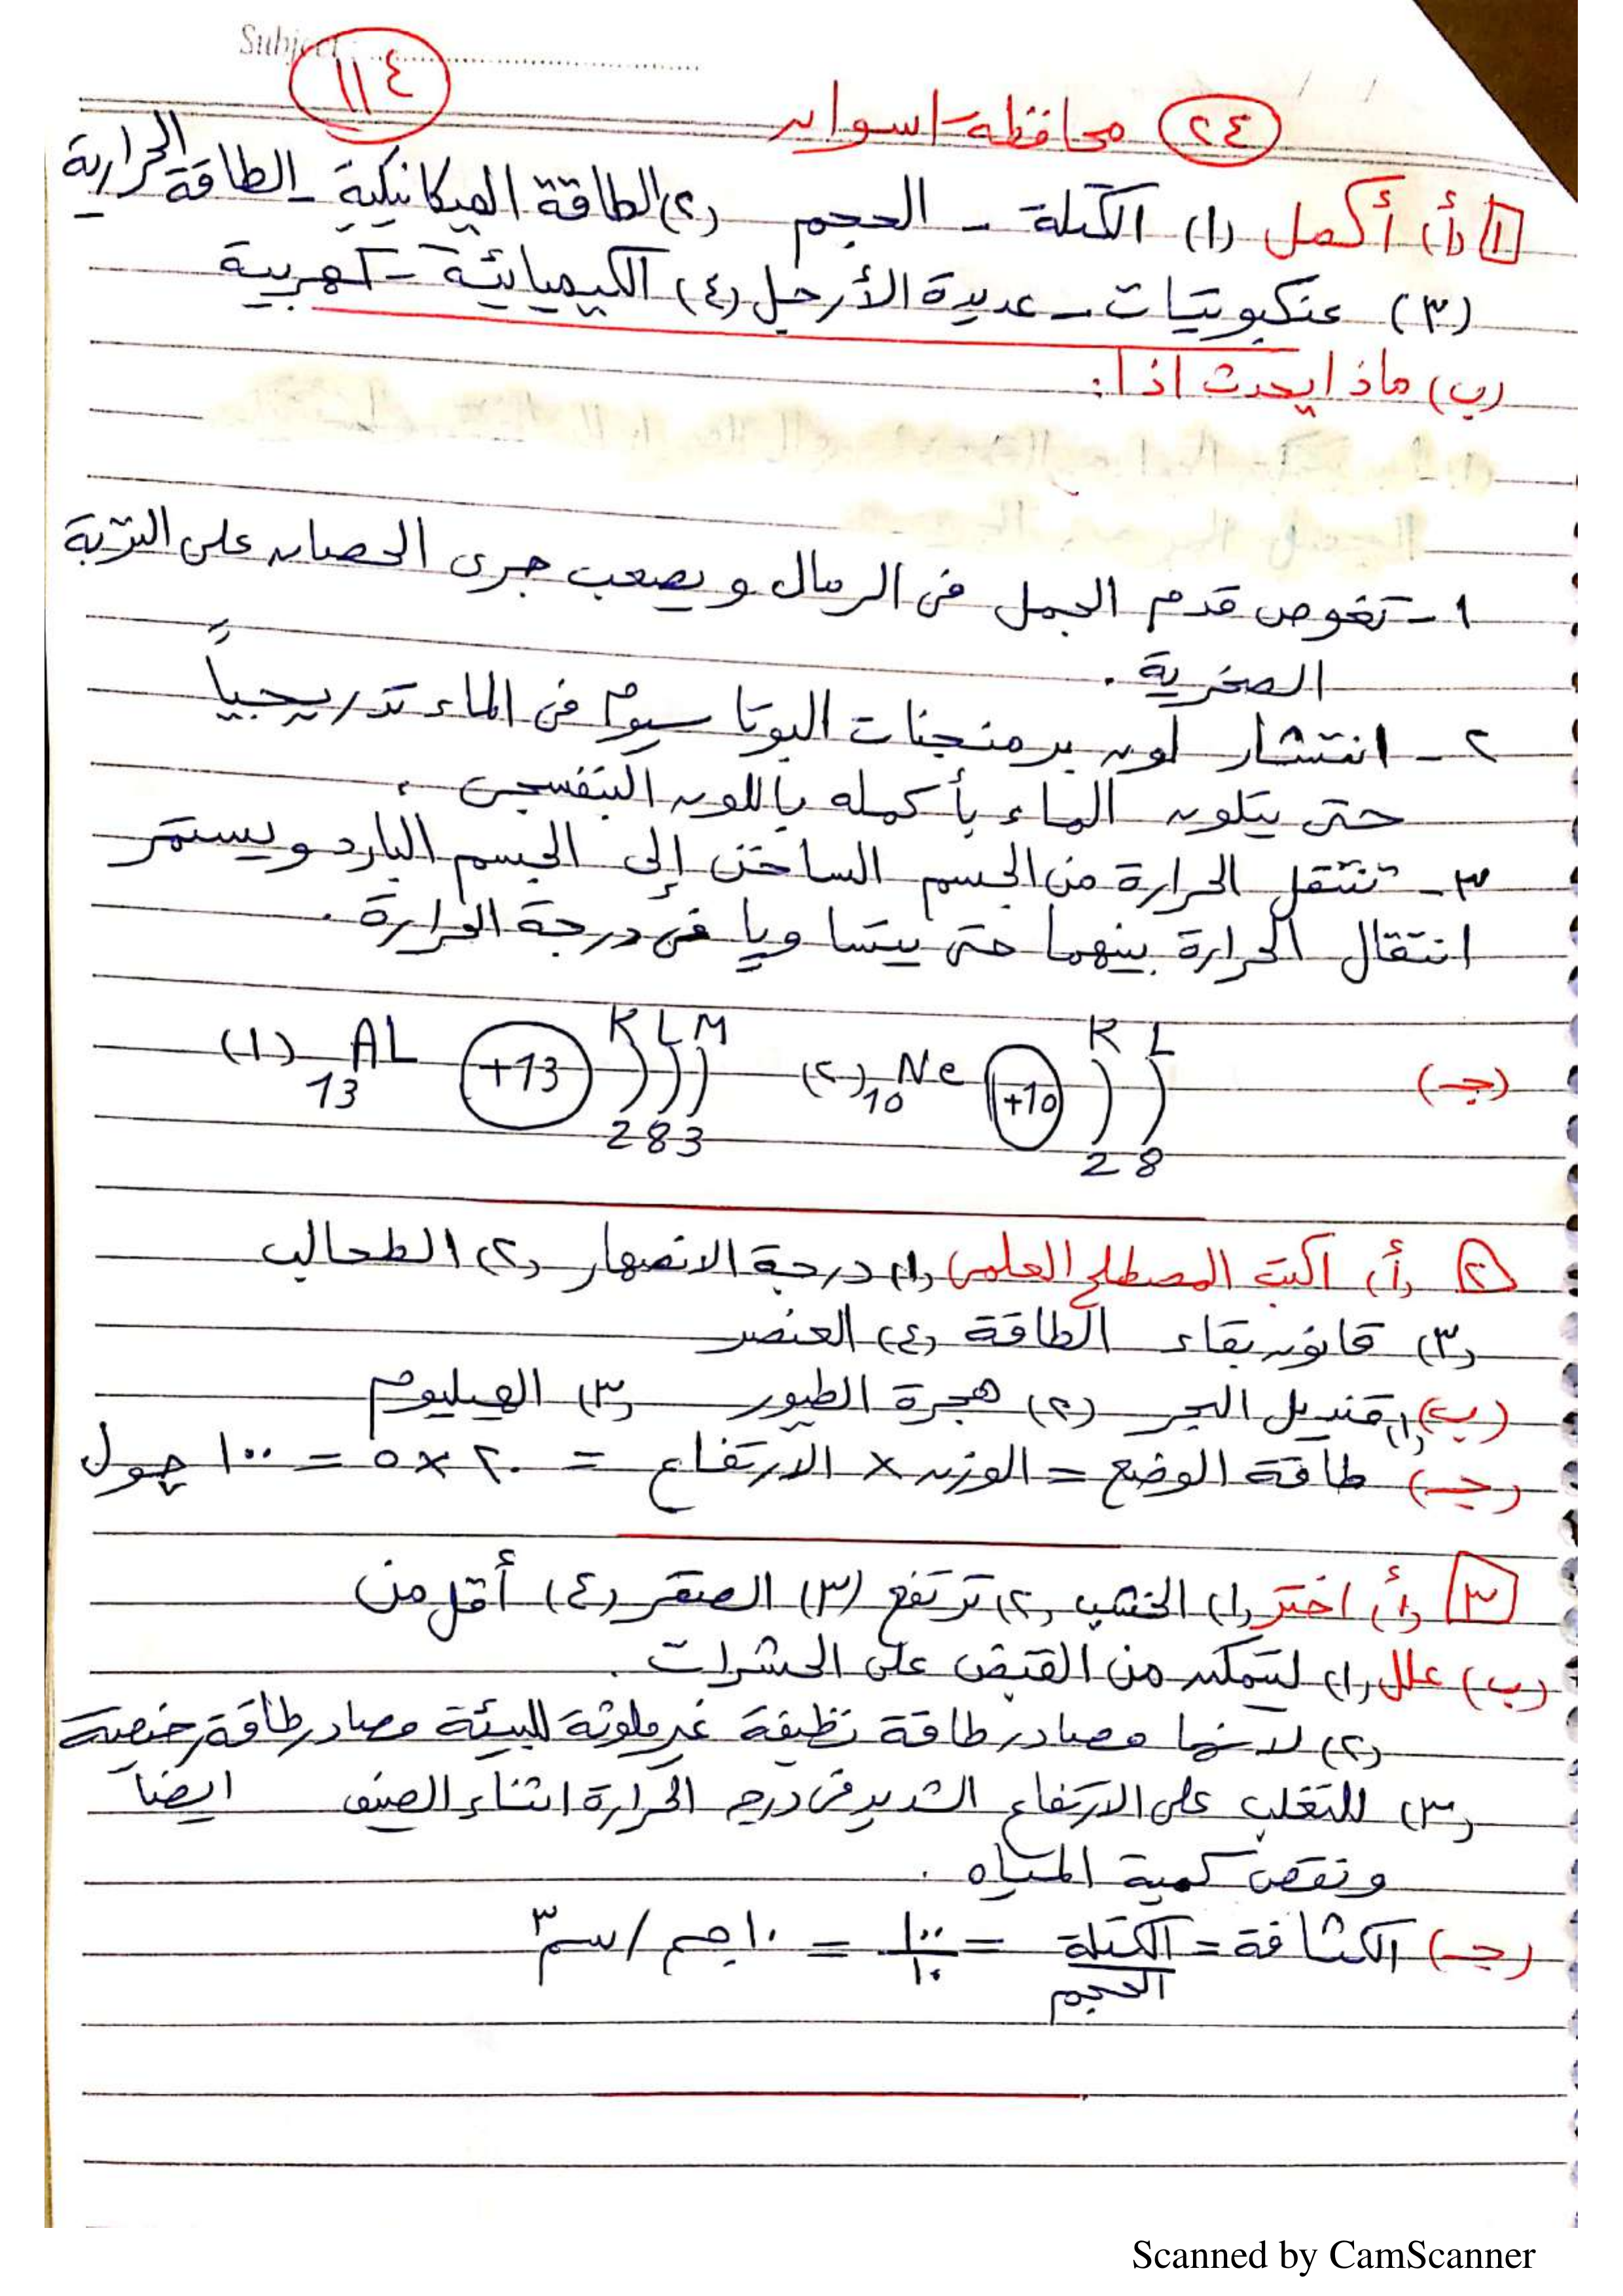 Subject:
١١٤
٢٤ محافظة اسوان
١ (أ) أكمل (١) الكتلة - الحجم (٢) الطاقة الميكانيكية - الطاقة الحرارية
(٣) عنكبوتيات - عديدة الأرجل (٤) الكيميائية - كهربية
(ب) ماذا يحدث اذا:
١ - تغوص قدم الجمل فى الرمال ويصعب جرى الحصان على التربة
الصخرية.
٢ - انتشار لون برمنجنات البوتاسيوم فى الماء تدريجياً
حتى يتلون الماء بأكمله باللون البنفسجى.
٣ - تنتقل الحرارة من الجسم الساخن إلى الجسم البارد ويستمر
انتقال الحرارة بينهما حتى يتساويا فى درجة الحرارة.
K L M K L
(١) 13 AL +13 (٢) 10 Ne +10 (جـ)
2 8 3 2 8
٢ (أ) اكتب المصطلح العلمى (١) درجة الانصهار (٢) الطحالب
(٣) قانون بقاء الطاقة (٤) العنصر
(ب) (١) قنديل البحر (٢) هجرة الطيور (٣) الهيليوم
(جـ) طاقة الوضع = الوزن × الارتفاع = ٢٠ × ٥ = ١٠٠ چول
٣ (أ) اختر (١) الخشب (٢) ترتفع (٣) الصقر (٤) أقل من
(ب) علل (١) لتتمكن من القبض على الحشرات.
(٢) لانها مصادر طاقة نظيفة غير ملوثة للبيئة مصادر طاقة رخيصة
(٣) للتغلب على الارتفاع الشديد فى درجة الحرارة اثناء الصيف ايضاً
ونقص كمية المياه.
(جـ) الكثافة = الكتلة / الحجم = ١٠٠ / ١٠ = ١٠ جم / سم٣
Scanned by CamScanner